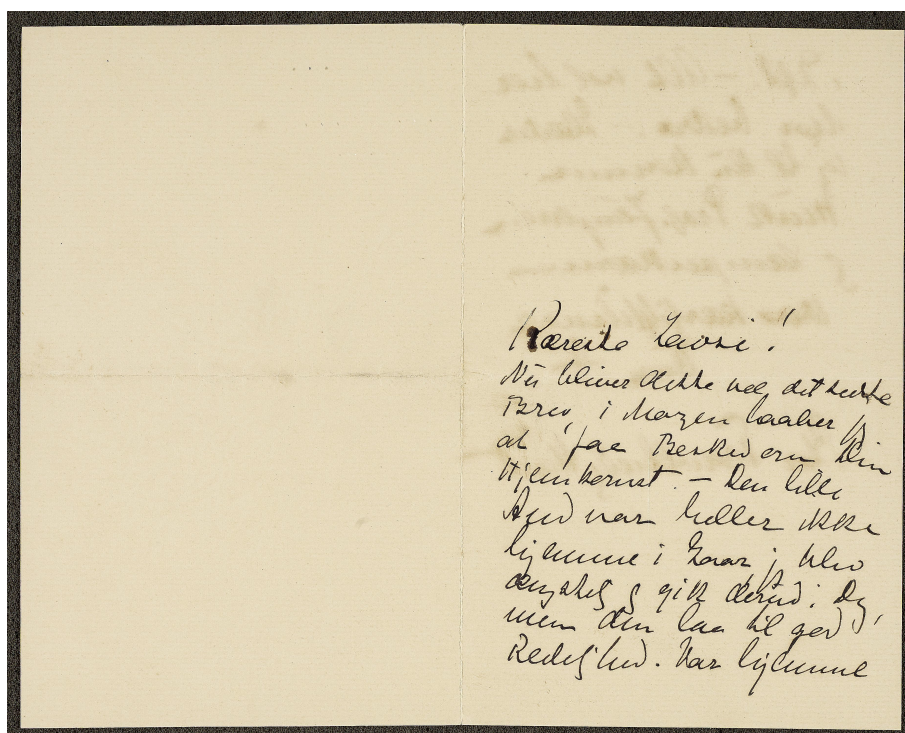 Kæreste Lavsi!
Nu bliver dette vel det sidste
Brev, i Morgen haaber j
at faa Besked om Din
Hjemkomst. – Den lille
And var heller ikke
hjemme i Gaar, j blev
ængstelig og gik derud i Dag,
men den laa til god
Redelighed. Var hjemme